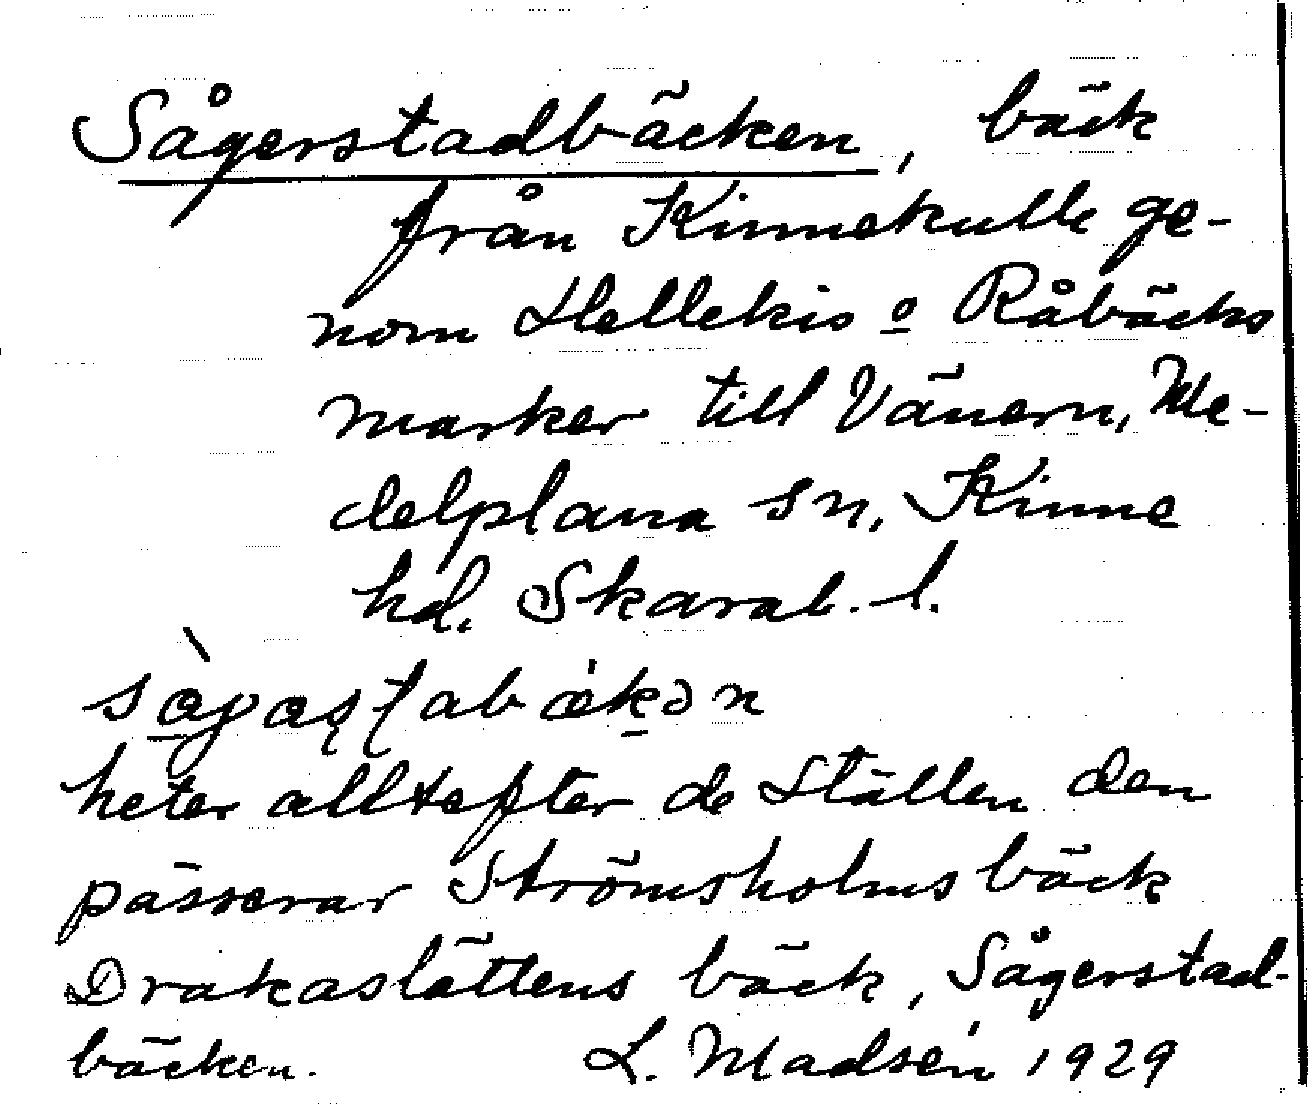 Sågerstadbäcken, bäck
från Kinnekulle ge-
nom Hellekis o Råbäcks
marker till Vänern, Me-
delplana sn, Kinne
hd. Skarab. l.
heter alltefter de ställen den
passerar Strömsholms bäck
Drakaslättens bäck, Sågerstad-
bäcken. L. Madsén 1929